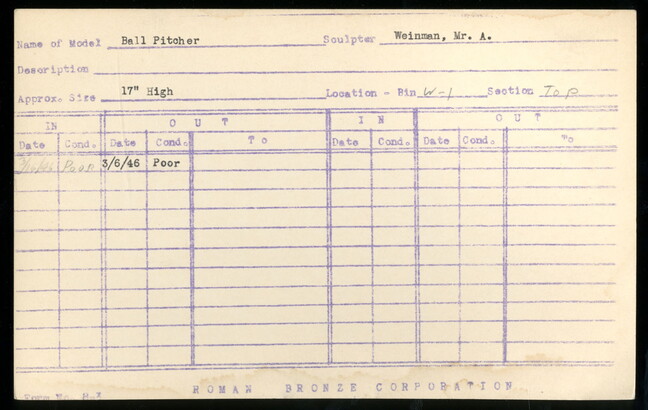 Name of Model Ball Pitcher Sculptor Weinman, Mr. A.
Description
Approx. Size 17" High Location - Bin W-1 Section Top
IN OUT IN OUT
Date Cond. Date Cond. To Date Cond. Date Cond. To
Poor 3/6/46 Poor
ROMAN BRONZE CORPORATION
Form No.